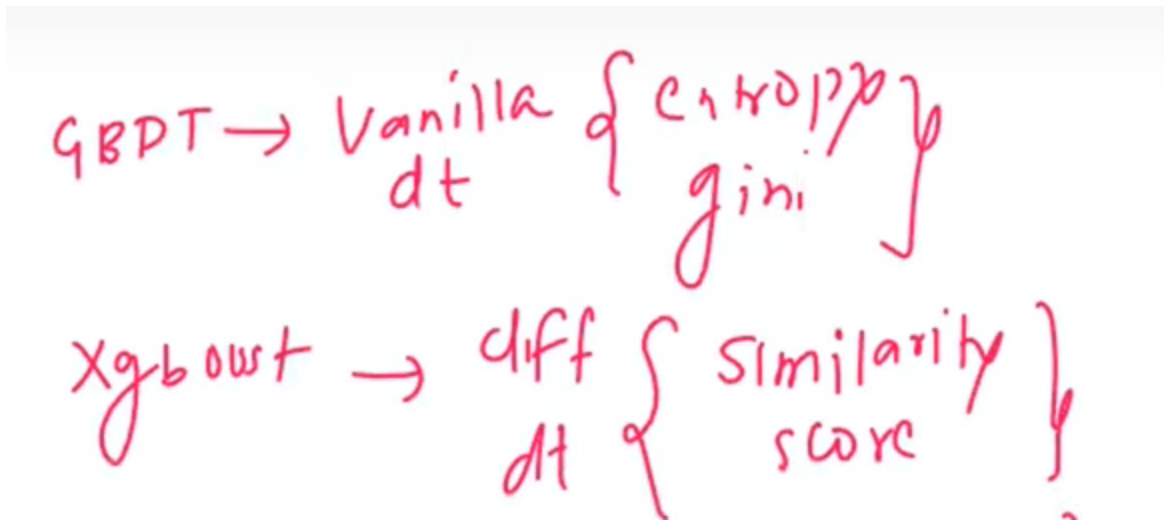 GBDT → Vanilla dt { entropy gini }
Xgboost → diff dt { similarity score }